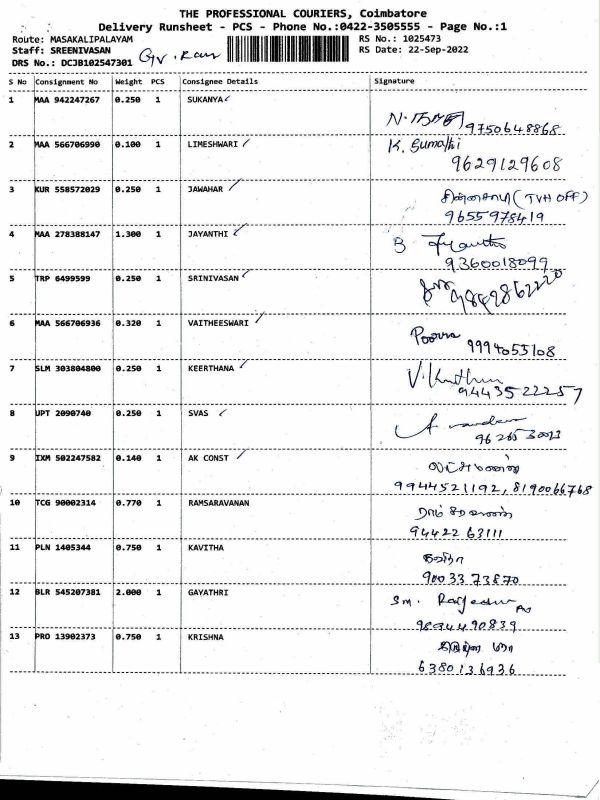 THE PROFESSIONAL COURIERS, Coimbatore
Delivery Runsheet - PCS - Phone No.:0422-3505555 - Page No.:1
Route: MASAKALIPALAYAM RS No.: 1025473
Staff: SREENIVASAN RS Date: 22-Sep-2022
DRS No.: DCJB102547301
S No Consignment No Weight PCS Consignee Details Signature
1 MAA 942247267 0.250 1 SUKANYA
9750648868
2 MAA 566706990 0.100 1 LIMESHWARI K. Sumathi
9629129608
3 KUR 558572029 0.250 1 JAWAHAR சின்னசாமி (TVH OFF)
9655978419
4 MAA 278388147 1.300 1 JAYANTHI B Jayanthi
9360018099
5 TRP 6499599 0.250 1 SRINIVASAN
6 MAA 566706936 0.320 1 VAITHEESWARI Poorna
9994055108
7 SLM 303804800 0.250 1 KEERTHANA
9443522257
8 UPT 2090740 0.250 1 SVAS
9 IXM 502247582 0.140 1 AK CONST லட்சுமணன்
9944521192, 8190066768
10 TCG 90002314 0.770 1 RAMSARAVANAN ராம் சரவணன்
9442263111
11 PLN 1405344 0.750 1 KAVITHA கவிதா
9003373870
12 BLR 545207381 2.000 1 GAYATHRI Sm.
9894490839
13 PRO 13902373 0.750 1 KRISHNA
6380136936